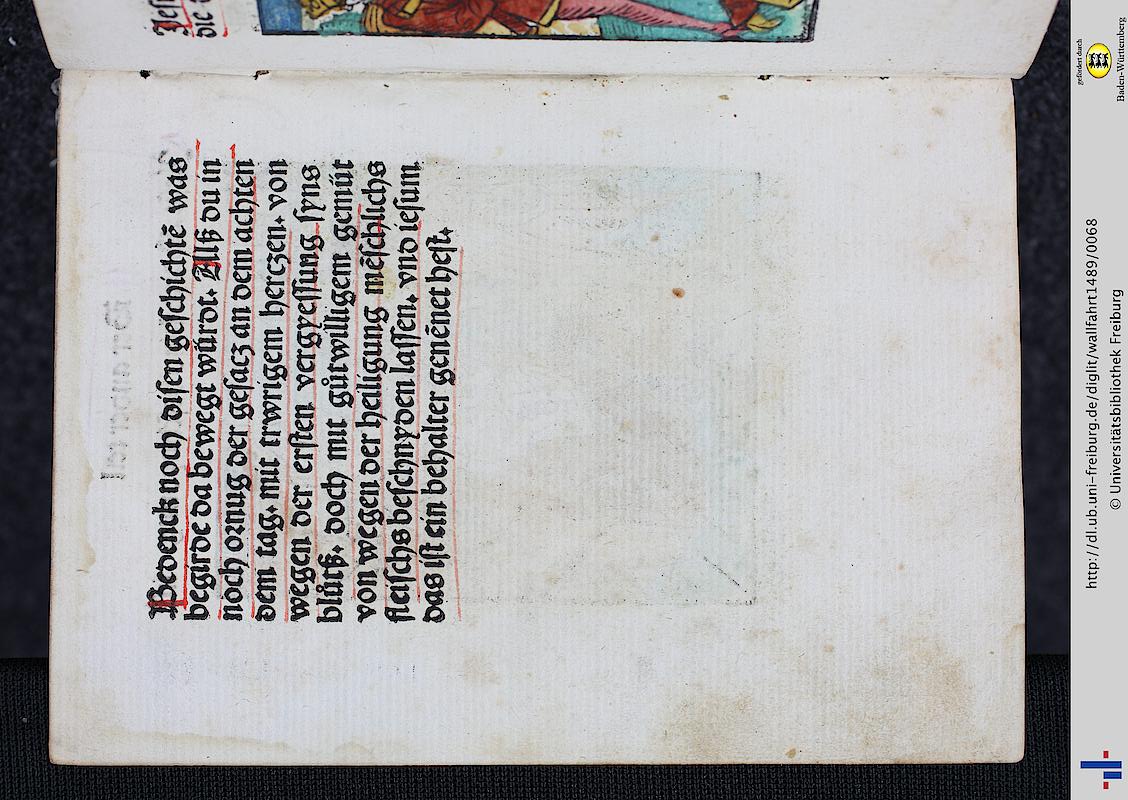 Bedenck noch disen geschichtē was
begirde da bewegt würdt. Alß du in
noch ornug der gesacz an dem achten
dem tag. mit trwrigem herczen. von
wegen der ersten vergyessung syns
blůtß. doch mit gůtwilligem gemüt
von wegen der heiligung mēschlichs
fleischs beschnyden lassen. vnd iesum
das ist ein behalter genēnet hest.
die
gefördert durch
Baden-Württemberg
http://dl.ub.uni-freiburg.de/diglit/wallfahrt1489/0068
© Universitätsbibliothek Freiburg